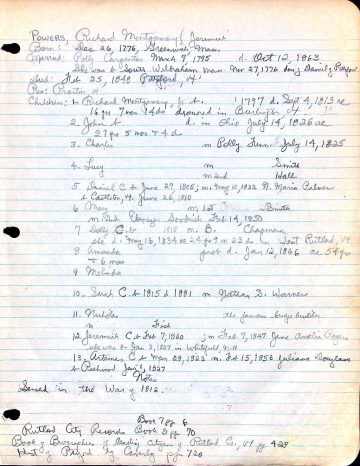 POWERS, Richard Montgomery (Jeremiah)
Born: Dec 26, 1776, Greenwich Mass.
Married: Polly Carpenter March 9, 1795 d. Oct 12, 1863
She was b. South Wilbraham Mass. Nov 27, 1776 dau of Daniel &
Died: Feb 25, 1848 Pittsford, Vt
Res: Proctor, Vt
Children: 1. Richard Montgomery, Jr. b. 1797 d. Sept 4, 1813 ae
16 yrs 7 mos 4 ds drowned in Burlington, Vt
2. John b d. in Ohio July 14, 1826 ae
27 yrs 5 mos 4 ds
3. Charles m Polly July 14, 1825
4. Lucy m Smith
m 2nd Hall
5. Daniel C b June 29, 1805; m. May 10, 1832 Maria
b Castleton, Vt. June 26, 1810
6. Mary m 1st Smith
m 2nd Ebenezer Goodrich Feb 14, 1850
7. Sally C. b 1810 m B. Chapman
she d. May 16, 1834 ae 24 yrs 9 m 23 ds in West Rutland, Vt
8 Amanda prob d. Jan 12, 1866 ae 54 yrs
+ 6 mos
9 Melinda
10. Sarah C. b 1815 d 1881 m Nathan S. Warner
11. Nicholas the famous bridge builder
m
12. Jeremiah C b Feb 7, 1820; m Feb 7, 1847 Jane Amelia
she was b. Jan 3, 1827 in
13. Artemas C b Mar 29, 1823 m. Feb 15, 1852 Juliana Douglass
b Richmond Jan 1827
Notes
Served in the War of 1812.
Book 7 pg 6
Rutland City Records Book 2 pg 70
Book of Biographies of Leading Citizens of Rutland Co., Vt pg 428
Hist of Pittsford by Caverly pg 720